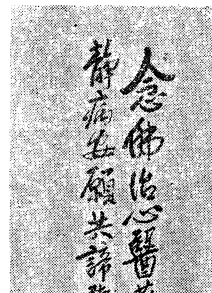 念佛治心醫
靜病安願共諦